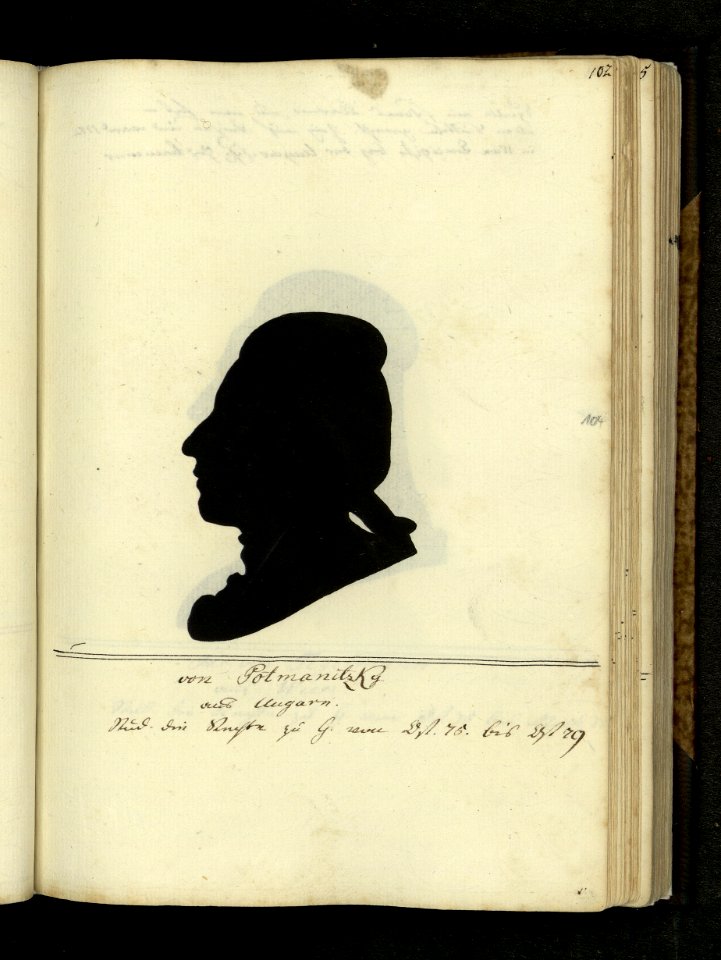 102
5
104
von Potmanitzky
aus Ungarn.
Stud. die Rechte zu G. von Ost. 75. bis Ost 79